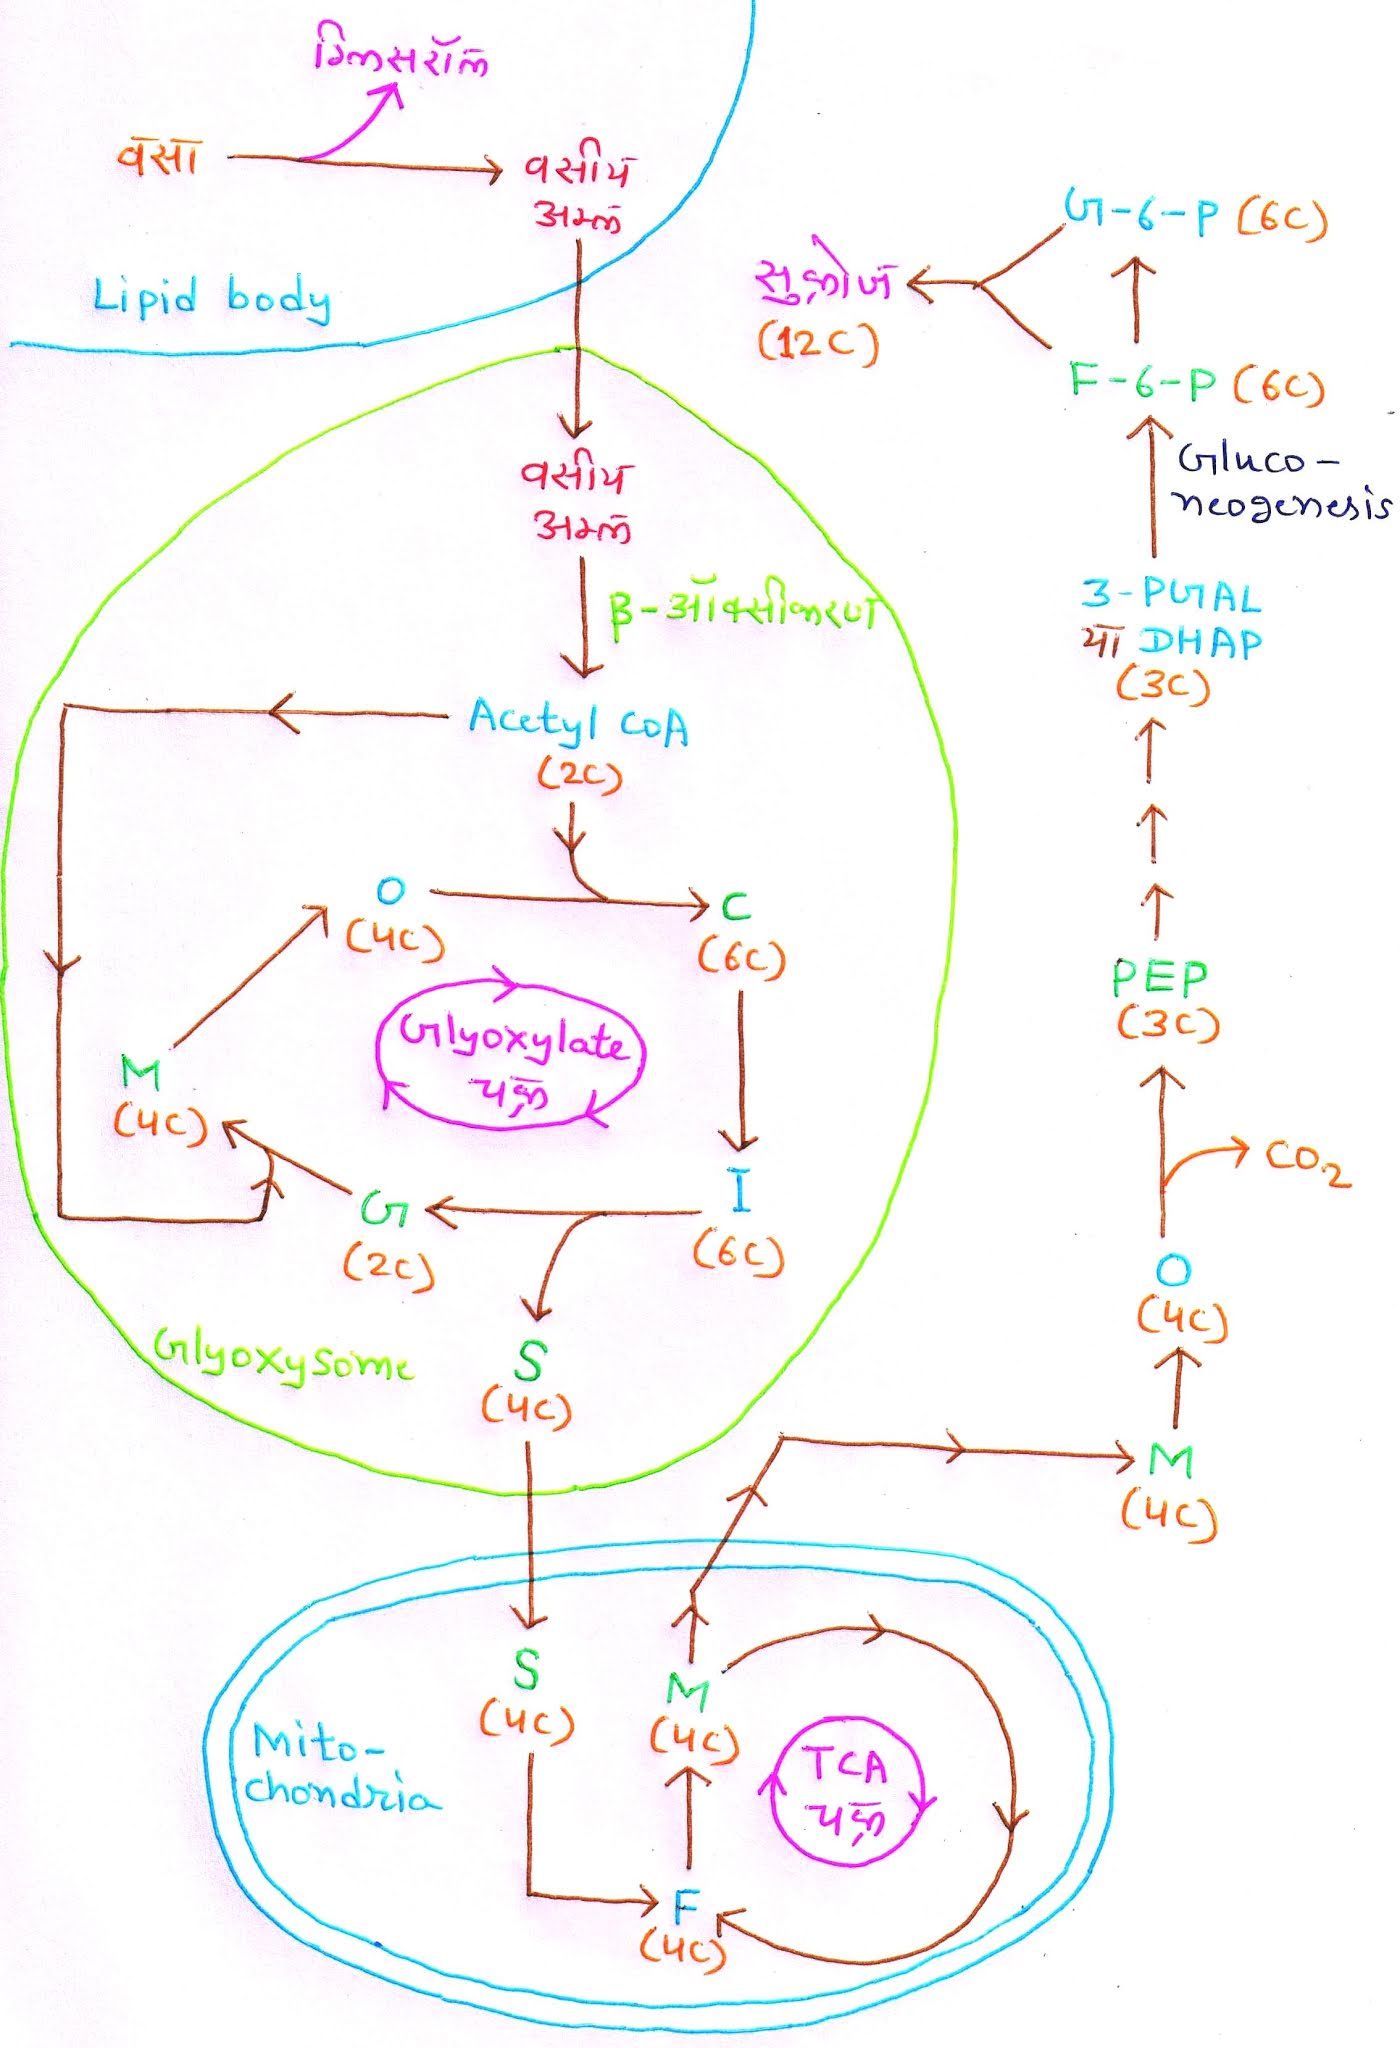 ग्लिसरॉल
वसा
वसीय
अम्ल
Lipid body
वसीय
अम्ल
β-ऑक्सीकरण
Acetyl CoA
(2C)
O
(4C)
C
(6C)
Glyoxylate
चक्र
M
(4C)
G
(2C)
I
(6C)
S
(4C)
Glyoxysome
S
(4C)
M
(4C)
F
(4C)
TCA
चक्र
Mito-
chondria
M
(4C)
O
(4C)
CO2
PEP
(3C)
3-PGAL
या DHAP
(3C)
Gluco-
neogenesis
F-6-P (6C)
G-6-P (6C)
सुक्रोज
(12C)